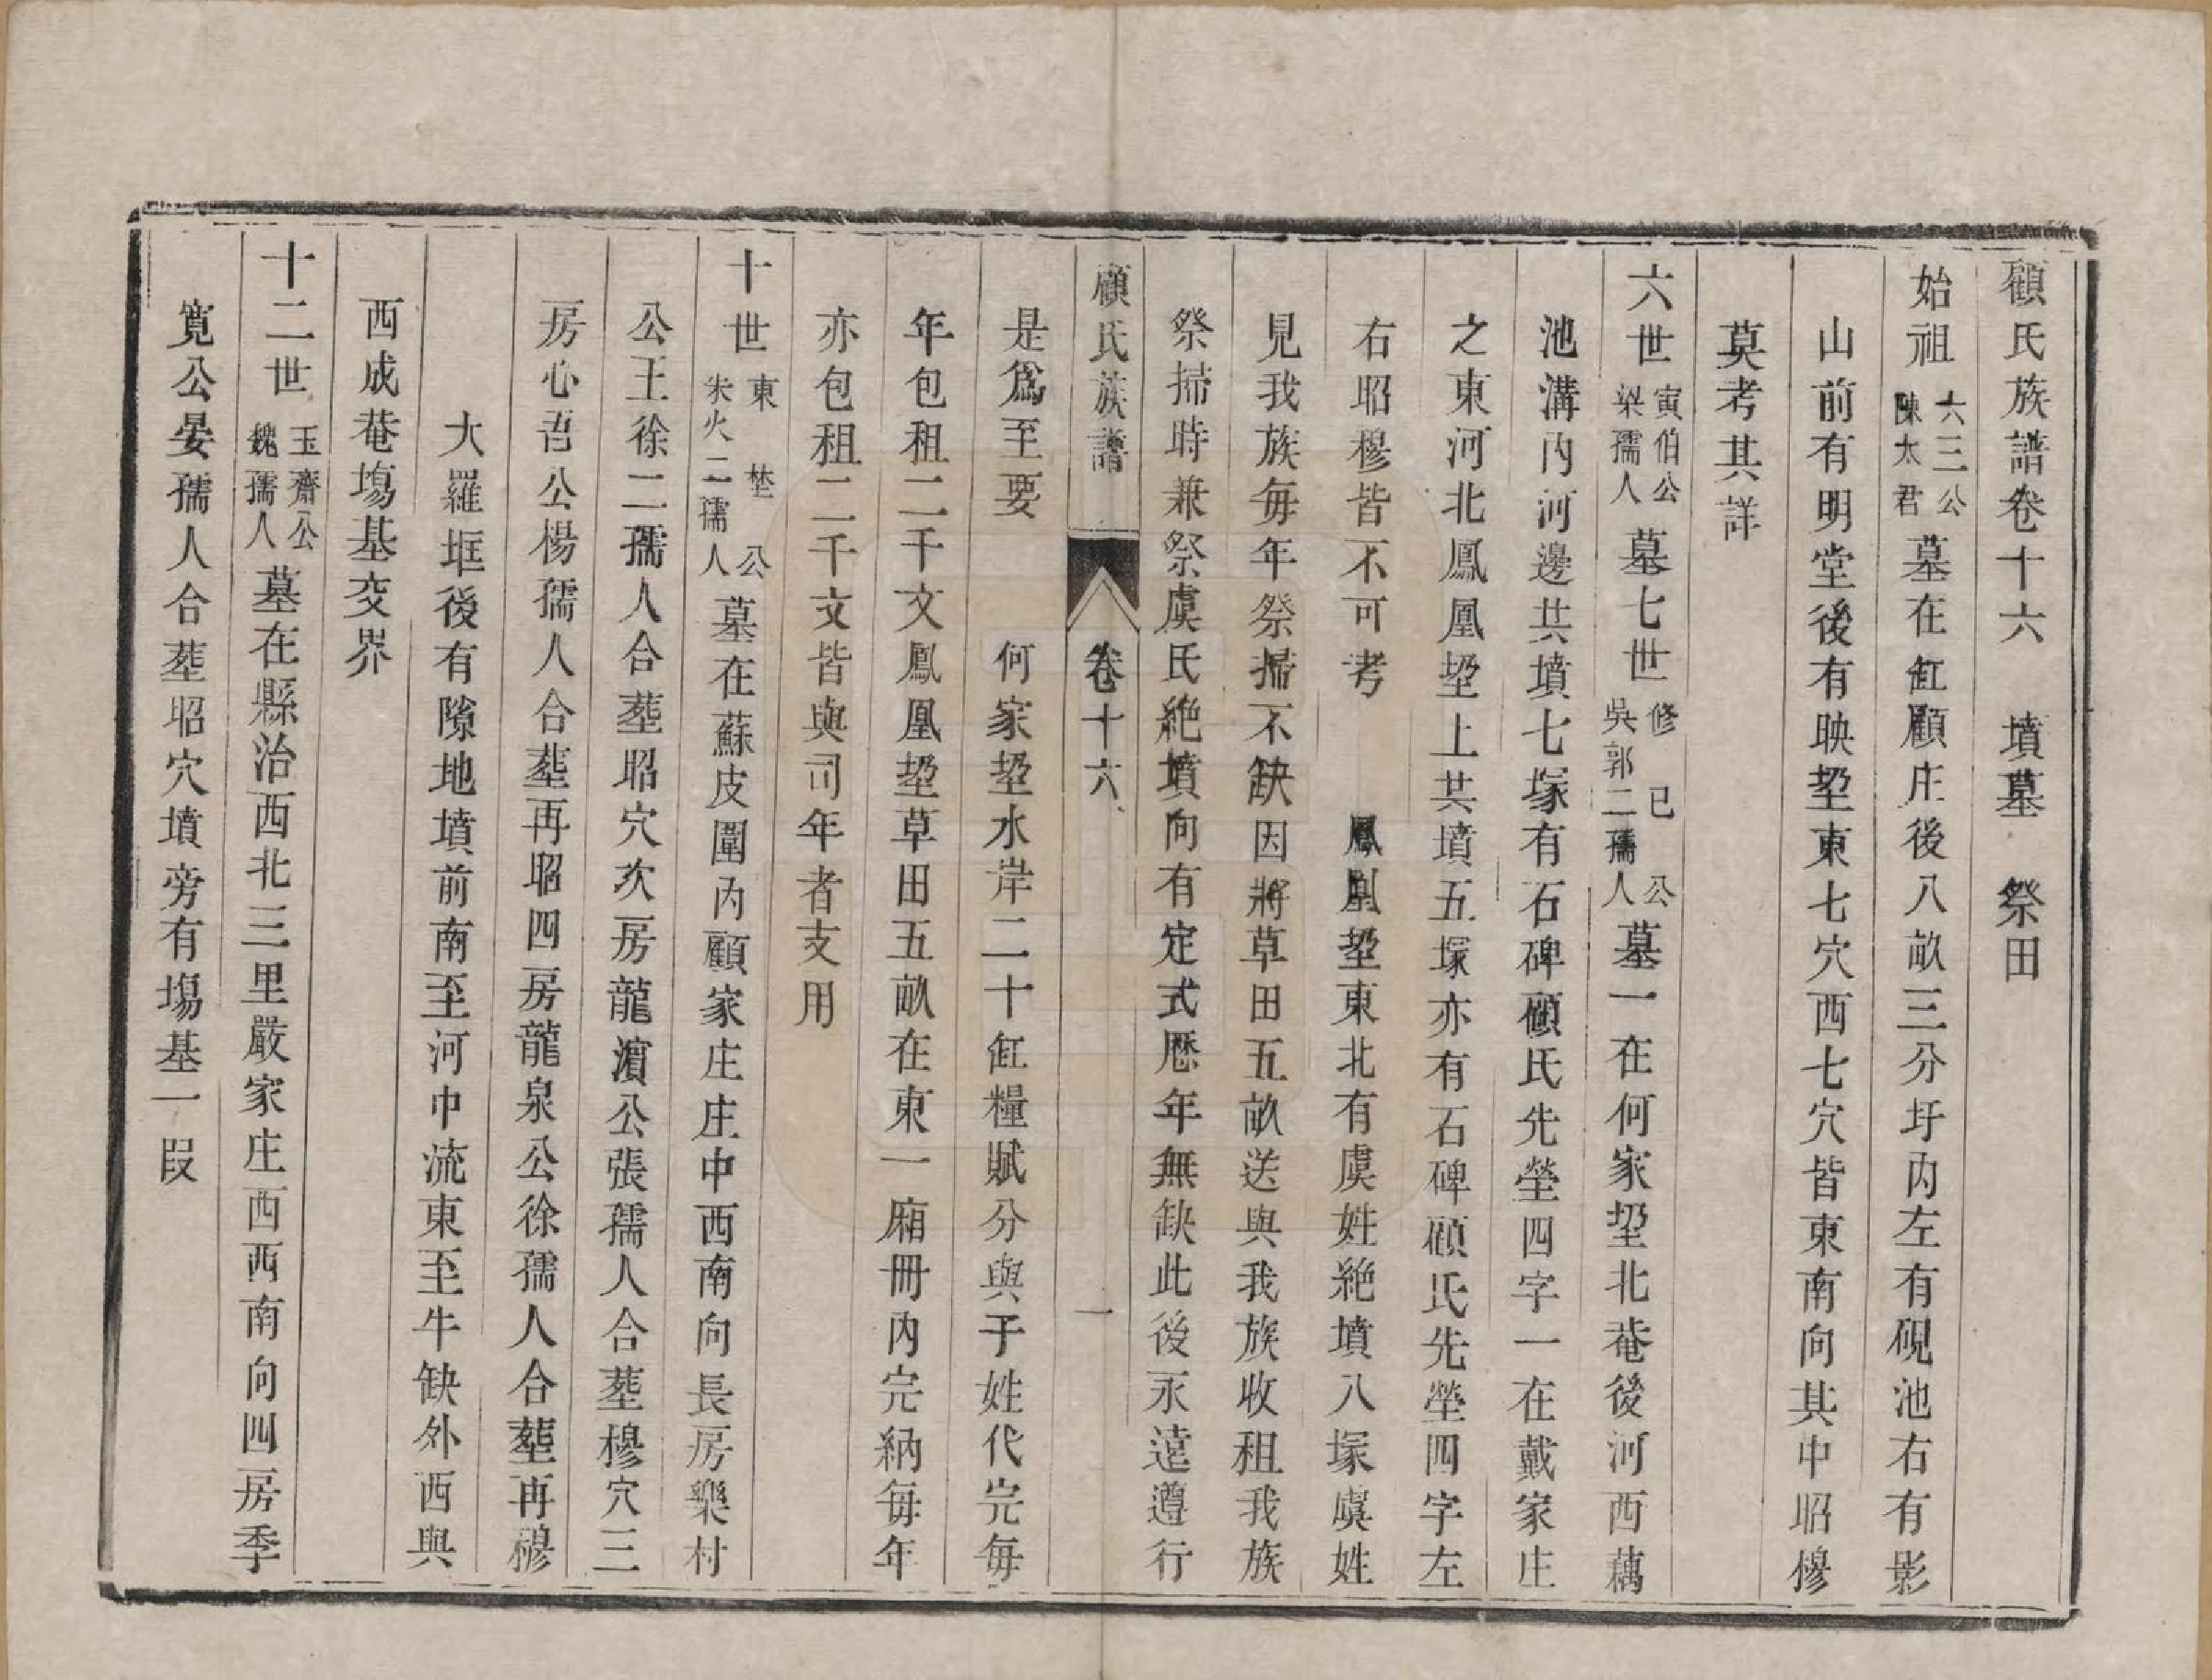 顧氏族譜卷十六　墳墓　祭田
始祖六三公陳太君墓在缸顧庄後八畝三分圩內左有硯池右有影
山前有明堂後有映垩東七穴西七穴皆東南向其中昭穆
莫考其詳
六世寅伯公梁孺人墓七世修己公吳郭二孺人墓一在何家垩北菴後河西藕
池溝內河邊共墳七塚有石碑顧氏先塋四字一在戴家庄
之東河北鳳凰垩上共墳五塚亦有石碑顧氏先塋四字左
右昭穆皆不可考　鳳凰垩東北有虞姓絶墳八塚虞姓
見我族每年祭掃不缺因將草田五畝送與我族收租我族
祭掃時兼祭虞氏絶墳向有定式歷年無缺此後永遠遵行
顧氏族譜　卷十六　一
是爲至要　何家垩水岸二十缸糧賦分與于姓代完每
年包租二千文鳳凰垩草田五畝在東一廂冊內完納每年
亦包租二千文皆與司年者支用
十世東埜公朱火二孺人墓在蘇皮圍內顧家庄庄中西南向長房樂村
公王徐二孺人合塟昭穴次房龍濵公張孺人合塟穆穴三
房心吾公楊孺人合塟再昭四房龍泉公徐孺人合塟再穆
大羅垭後有隙地墳前南至河中流東至牛缺外西與
西成菴塲基交界
十二世玉齋公魏孺人墓在縣治西北三里嚴家庄西西南向四房季
寬公晏孺人合塟昭穴墳旁有塲基一段